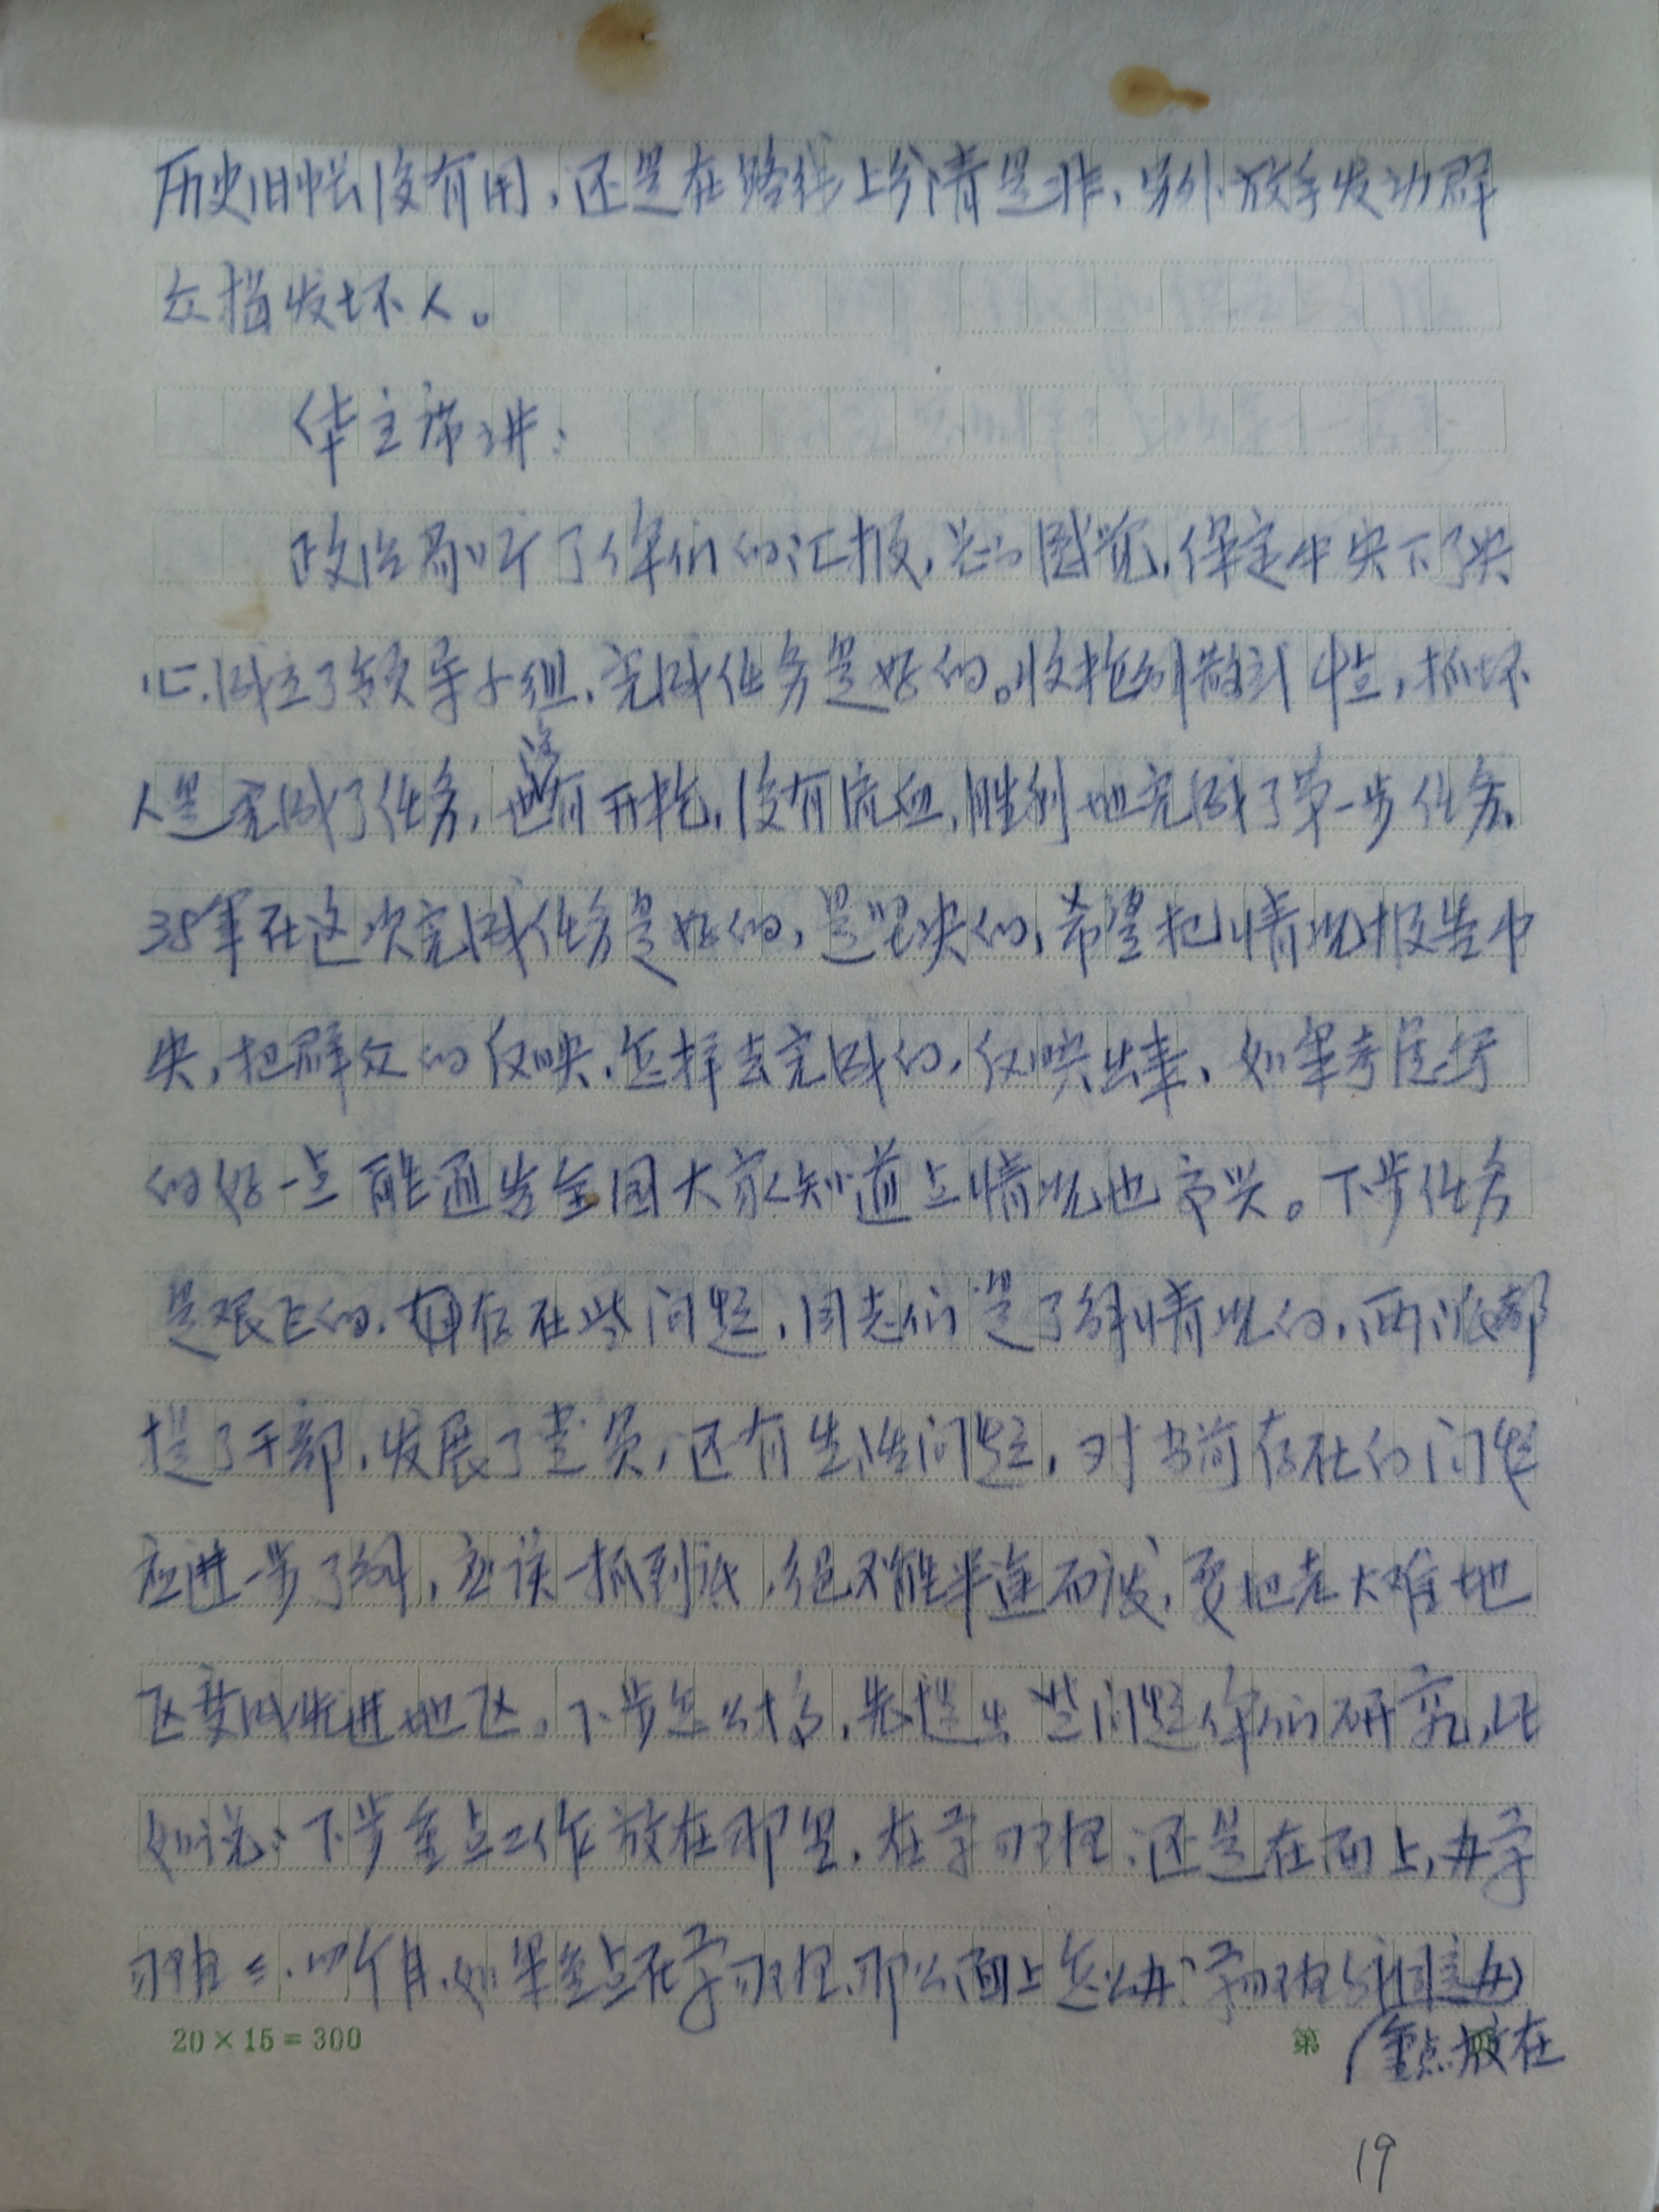 历史旧帐没有用，还是在路线上分清是非，另外放手发动群
众揭发坏人。
华主席讲：
政治局听了你们的汇报，总的感觉，保定中央下了决
心，成立了领导小组，完成任务是好的。收枪解散武斗，抓坏
人是完成了任务，没有开枪，没有流血，胜利地完成了第一步任务。
38军在这次完成任务是好的，是坚决的，希望把情况报告中
央，把群众的反映，怎样去完成的，反映出来，如果考虑写
的好一点能通告全国大家知道点情况也高兴。下步任务
是艰巨的，存在些问题，同志们是了解情况的，两派都
提了干部，发展了党员，还有生活问题，对当前存在的问题
应进一步了解，应该一抓到底，绝不能半途而废，要把老大难地
区变成先进地区，下步怎么搞，先提出些问题你们研究，比
如说：下步重点工作放在那里，在学习班，还是在面上，办学
习班三、四个月，如果重点在学习班，那么面上怎么办？学习班
（重点放在
20×15=300
第
19